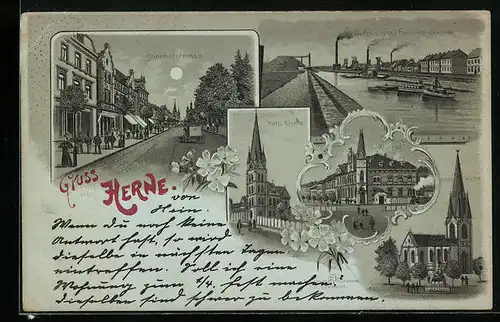 Bahnhofstrasse
Kath. Kirche
Gruss
aus
HERNE.
von
Hein.
Wenn du noch keine
Antwort hast, so wird
dieselbe in nächsten Tagen
eintreffen. Soll ich eine
Wohnung zum 1/4. fest machen?
dieselben sind schwer zu bekommen.